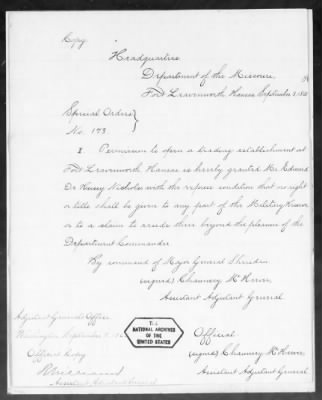 Copy.
Headquarters
Department of the Missouri,
Fort Leavenworth Kansas September
Special Orders
No. 173.
I. Permission to open a trading establishment at
Fort Leavenworth Kansas is hereby granted Mr. Edward
De Nichols with the express condition that no right
or title shall be given to any part of the Military Reserve
or to a claim to reside there beyond the pleasure of the
Department Commander.
By command of Major General Sheridan
(signed) Chauncey McKeever
Assistant Adjutant General
Adjutant General's Office
Washington September
Official Copy
Assistant Adjutant General
T. I.
NATIONAL ARCHIVES
OF THE
UNITED STATES
Official
(signed) Chauncey McKeever
Assistant Adjutant General